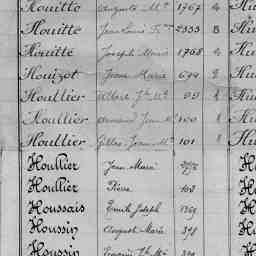 Houitte Auguste Mie 1767 4 Hu
Houitte Jean Louis Fr 2333 8 Hu
Houitte Joseph Marie 1768 4 Hu
Houizot Jean Marie 694 2 Hu
Houllier Albert Jh Mie 99 8 Hu
Houllier Jean M 100 8 Hu
Houllier Gilles Jean Mie 101 8 Hu
Houllier Jean Marie H
Houllier Pierre 102 H
Houssais Emile Joseph 1769 H
Houssin Auguste Marie 398 H
Houssin Mie 399 H